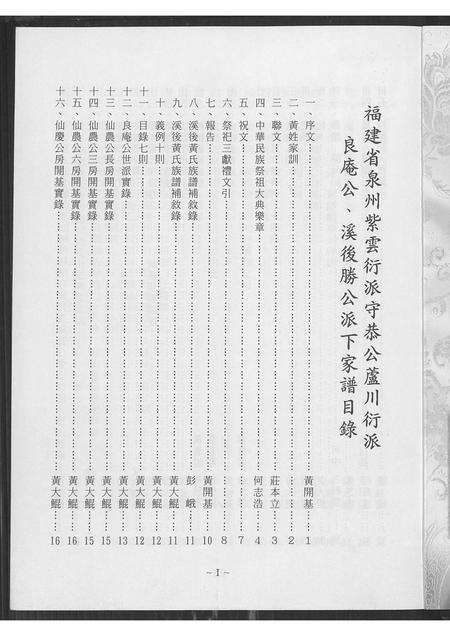 福建省泉州紫雲衍派守恭公蘆川衍派
良庵公、溪後勝公派下家譜目錄
一、序文……黃開基……1
二、黃姓家訓……2
三、聯文……莊本立……3
四、中華民族祭祖大典樂章……何志浩……4
五、祝文……7
六、祭祀三獻禮文引……8
七、報告……黃開基……10
八、溪後黃氏族譜補敘錄……彭峨……11
九、溪後黃氏族譜補敘錄……黃大鯤……11
十、義例十則……黃大鯤……12
十一、目錄七則……黃大鯤……12
十二、良庵公世派實錄……黃大鯤……13
十三、仙農公長房開基實錄……黃大鯤……15
十四、仙農公三房開基實錄……黃大鯤……15
十五、仙農公六房開基實錄……黃大鯤……16
十六、仙慶公房開基實錄……黃大鯤……16
~I~